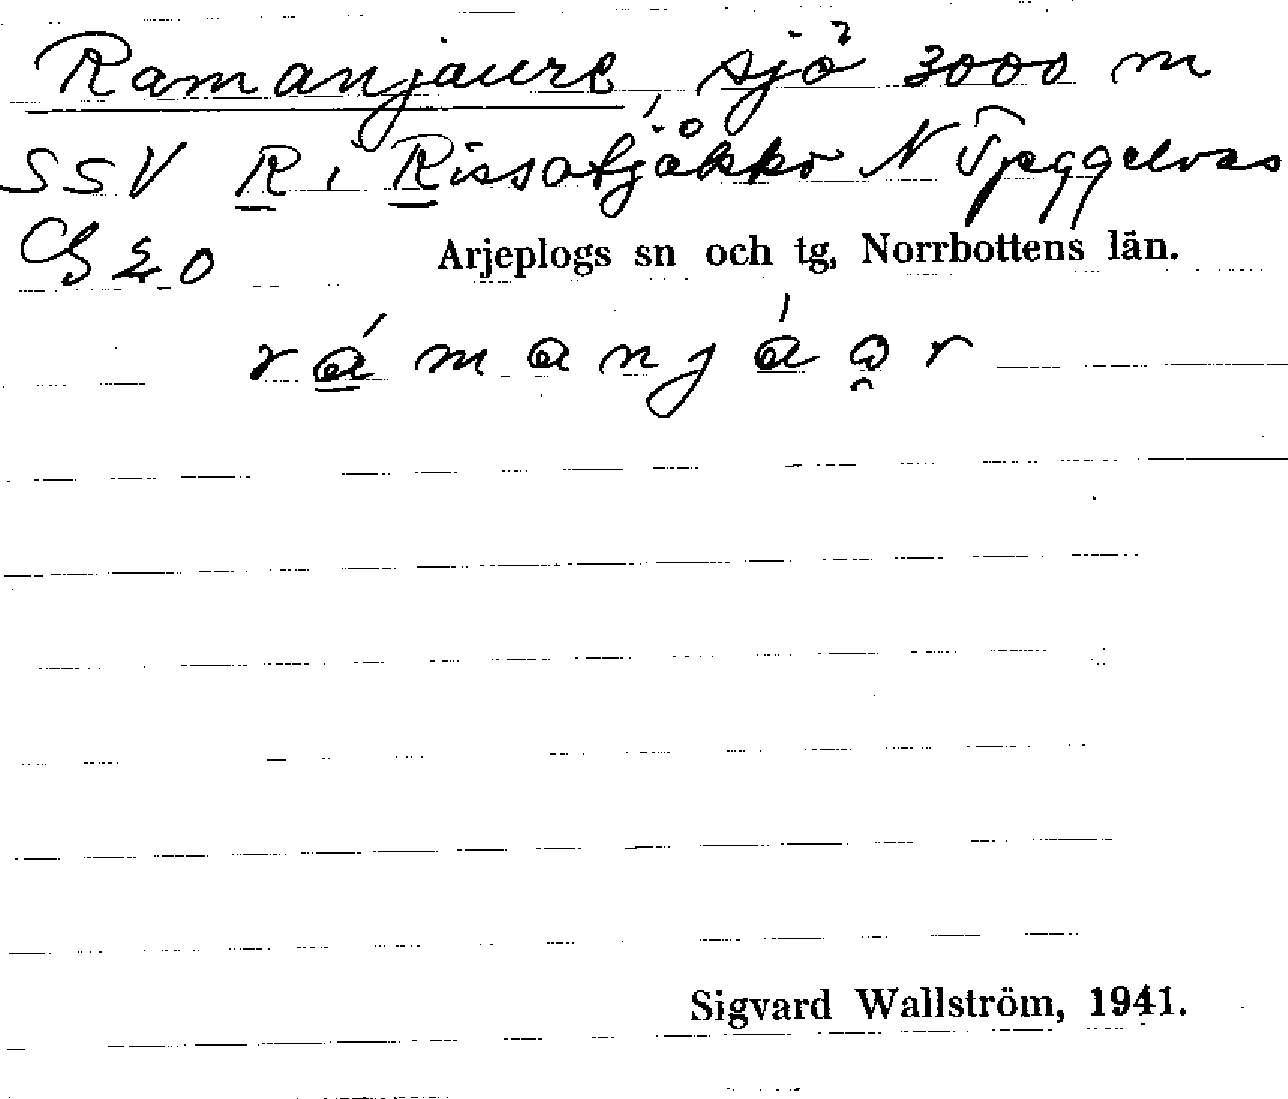 Ramanjaure, sjö 3000 m
SSV R i Rissatjåkko N Tjeggelvas
Arjeplogs sn och tg, Norrbottens län.
rámanjáo̯r
Sigvard Wallström, 1941.